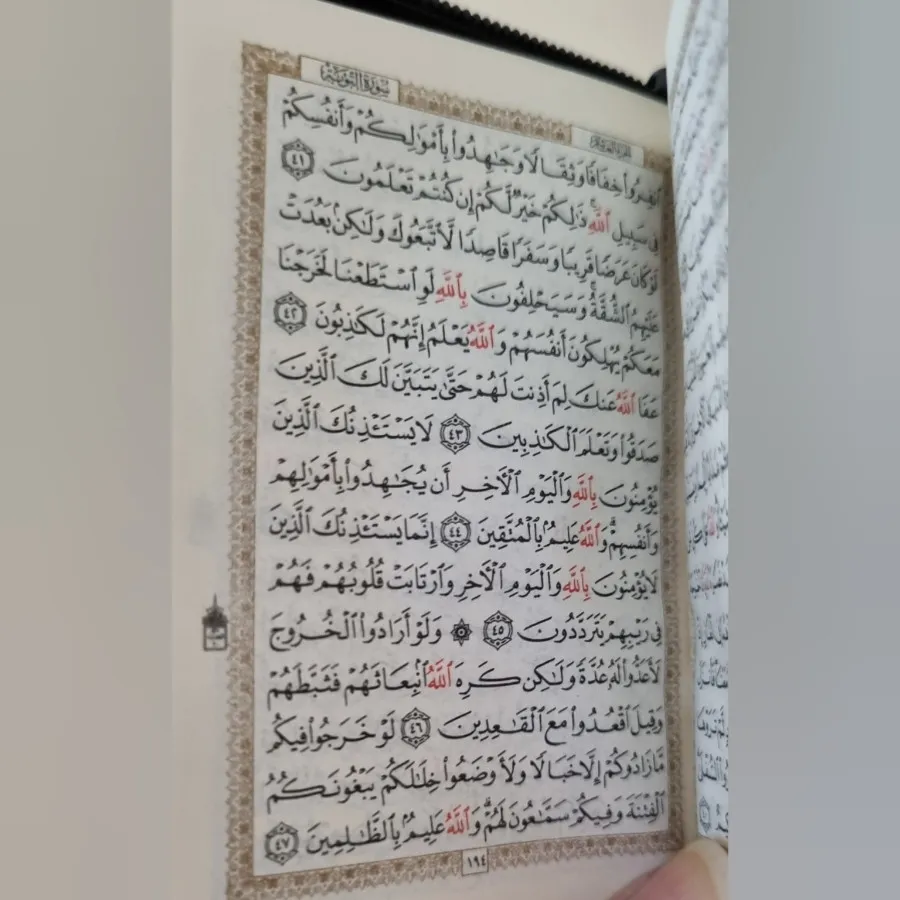 سورة التوبة
الجزء العاشر
ٱنفِرُوا۟ خِفَافًا وَثِقَالًا وَجَٰهِدُوا۟ بِأَمْوَٰلِكُمْ وَأَنفُسِكُمْ
فِى سَبِيلِ ٱللَّهِ ۚ ذَٰلِكُمْ خَيْرٌ لَّكُمْ إِن كُنتُمْ تَعْلَمُونَ ٤١
لَوْ كَانَ عَرَضًا قَرِيبًا وَسَفَرًا قَاصِدًا لَّٱتَّبَعُوكَ وَلَٰكِنۢ بَعُدَتْ
عَلَيْهِمُ ٱلشُّقَّةُ ۚ وَسَيَحْلِفُونَ بِٱللَّهِ لَوِ ٱسْتَطَعْنَا لَخَرَجْنَا
مَعَكُمْ يُهْلِكُونَ أَنفُسَهُمْ وَٱللَّهُ يَعْلَمُ إِنَّهُمْ لَكَٰذِبُونَ ٤٢
عَفَا ٱللَّهُ عَنكَ لِمَ أَذِنتَ لَهُمْ حَتَّىٰ يَتَبَيَّنَ لَكَ ٱلَّذِينَ
صَدَقُوا۟ وَتَعْلَمَ ٱلْكَٰذِبِينَ ٤٣ لَا يَسْتَـْٔذِنُكَ ٱلَّذِينَ
يُؤْمِنُونَ بِٱللَّهِ وَٱلْيَوْمِ ٱلْـَٔاخِرِ أَن يُجَٰهِدُوا۟ بِأَمْوَٰلِهِمْ
وَأَنفُسِهِمْ ۗ وَٱللَّهُ عَلِيمٌۢ بِٱلْمُتَّقِينَ ٤٤ إِنَّمَا يَسْتَـْٔذِنُكَ ٱلَّذِينَ
لَا يُؤْمِنُونَ بِٱللَّهِ وَٱلْيَوْمِ ٱلْـَٔاخِرِ وَٱرْتَابَتْ قُلُوبُهُمْ فَهُمْ
فِى رَيْبِهِمْ يَتَرَدَّدُونَ ٤٥ ۞ وَلَوْ أَرَادُوا۟ ٱلْخُرُوجَ
لَأَعَدُّوا۟ لَهُۥ عُدَّةً وَلَٰكِن كَرِهَ ٱللَّهُ ٱنۢبِعَاثَهُمْ فَثَبَّطَهُمْ
وَقِيلَ ٱقْعُدُوا۟ مَعَ ٱلْقَٰعِدِينَ ٤٦ لَوْ خَرَجُوا۟ فِيكُم
مَّا زَادُوكُمْ إِلَّا خَبَالًا وَلَأَوْضَعُوا۟ خِلَٰلَكُمْ يَبْغُونَكُمُ
ٱلْفِتْنَةَ وَفِيكُمْ سَمَّٰعُونَ لَهُمْ ۗ وَٱللَّهُ عَلِيمٌۢ بِٱلظَّٰلِمِينَ ٤٧
١٩٤